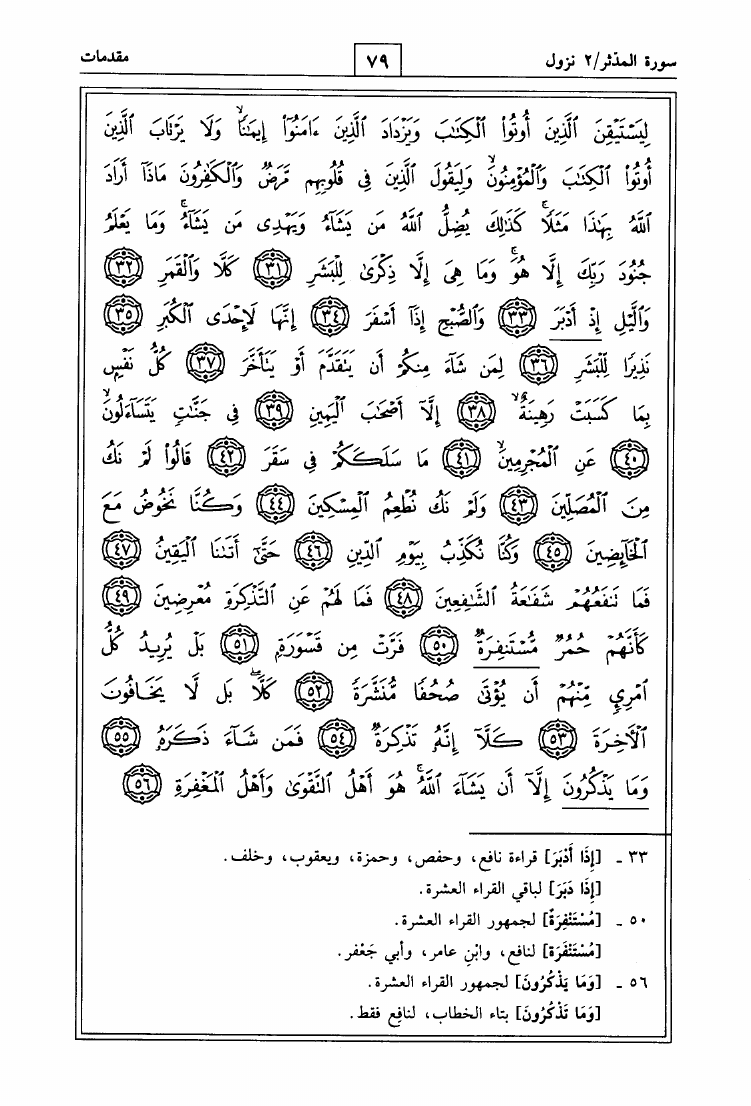 سورة المدثر/٢ نزول ٧٩ مقدمات
لِيَسْتَيْقِنَ ٱلَّذِينَ أُوتُوا۟ ٱلْكِتَـٰبَ وَيَزْدَادَ ٱلَّذِينَ ءَامَنُوٓا۟ إِيمَـٰنًا ۙ وَلَا يَرْتَابَ ٱلَّذِينَ
أُوتُوا۟ ٱلْكِتَـٰبَ وَٱلْمُؤْمِنُونَ ۙ وَلِيَقُولَ ٱلَّذِينَ فِى قُلُوبِهِم مَّرَضٌ وَٱلْكَـٰفِرُونَ مَاذَآ أَرَادَ
ٱللَّهُ بِهَـٰذَا مَثَلًا ۚ كَذَٰلِكَ يُضِلُّ ٱللَّهُ مَن يَشَآءُ وَيَهْدِى مَن يَشَآءُ ۚ وَمَا يَعْلَمُ
جُنُودَ رَبِّكَ إِلَّا هُوَ ۚ وَمَا هِىَ إِلَّا ذِكْرَىٰ لِلْبَشَرِ ٣١ كَلَّا وَٱلْقَمَرِ ٣٢
وَٱلَّيْلِ إِذْ أَدْبَرَ ٣٣ وَٱلصُّبْحِ إِذَآ أَسْفَرَ ٣٤ إِنَّهَا لَإِحْدَى ٱلْكُبَرِ ٣٥
نَذِيرًا لِّلْبَشَرِ ٣٦ لِمَن شَآءَ مِنكُمْ أَن يَتَقَدَّمَ أَوْ يَتَأَخَّرَ ٣٧ كُلُّ نَفْسٍۭ
بِمَا كَسَبَتْ رَهِينَةٌ ٣٨ إِلَّآ أَصْحَـٰبَ ٱلْيَمِينِ ٣٩ فِى جَنَّـٰتٍ يَتَسَآءَلُونَ ۙ
٤٠ عَنِ ٱلْمُجْرِمِينَ ۙ ٤١ مَا سَلَكَكُمْ فِى سَقَرَ ٤٢ قَالُوا۟ لَمْ نَكُ
مِنَ ٱلْمُصَلِّينَ ٤٣ وَلَمْ نَكُ نُطْعِمُ ٱلْمِسْكِينَ ٤٤ وَكُنَّا نَخُوضُ مَعَ
ٱلْخَآئِضِينَ ٤٥ وَكُنَّا نُكَذِّبُ بِيَوْمِ ٱلدِّينِ ٤٦ حَتَّىٰٓ أَتَىٰنَا ٱلْيَقِينُ ٤٧
فَمَا تَنفَعُهُمْ شَفَـٰعَةُ ٱلشَّـٰفِعِينَ ٤٨ فَمَا لَهُمْ عَنِ ٱلتَّذْكِرَةِ مُعْرِضِينَ ٤٩
كَأَنَّهُمْ حُمُرٌ مُّسْتَنفِرَةٌ ٥٠ فَرَّتْ مِن قَسْوَرَةٍۭ ٥١ بَلْ يُرِيدُ كُلُّ
ٱمْرِئٍ مِّنْهُمْ أَن يُؤْتَىٰ صُحُفًا مُّنَشَّرَةً ٥٢ كَلَّا ۖ بَل لَّا يَخَافُونَ
ٱلْـَٔاخِرَةَ ٥٣ كَلَّآ إِنَّهُۥ تَذْكِرَةٌ ٥٤ فَمَن شَآءَ ذَكَرَهُۥ ٥٥
وَمَا يَذْكُرُونَ إِلَّآ أَن يَشَآءَ ٱللَّهُ ۚ هُوَ أَهْلُ ٱلتَّقْوَىٰ وَأَهْلُ ٱلْمَغْفِرَةِ ٥٦
٣٣ ـ [إِذَا أَدْبَرَ] قراءة نافع، وحفص، وحمزة، ويعقوب، وخلف.
[إِذَا دَبَرَ] لباقي القراء العشرة.
٥٠ ـ [مُسْتَنْفِرَةٌ] لجمهور القراء العشرة.
[مُسْتَنْفَرَة] لنافع، وابْنِ عامر، وأبي جَعْفر.
٥٦ ـ [وَمَا يَذْكُرُونَ] لجمهور القراء العشرة.
[وَمَا تَذْكُرُونَ] بتاء الخطاب، لنافع فقط.